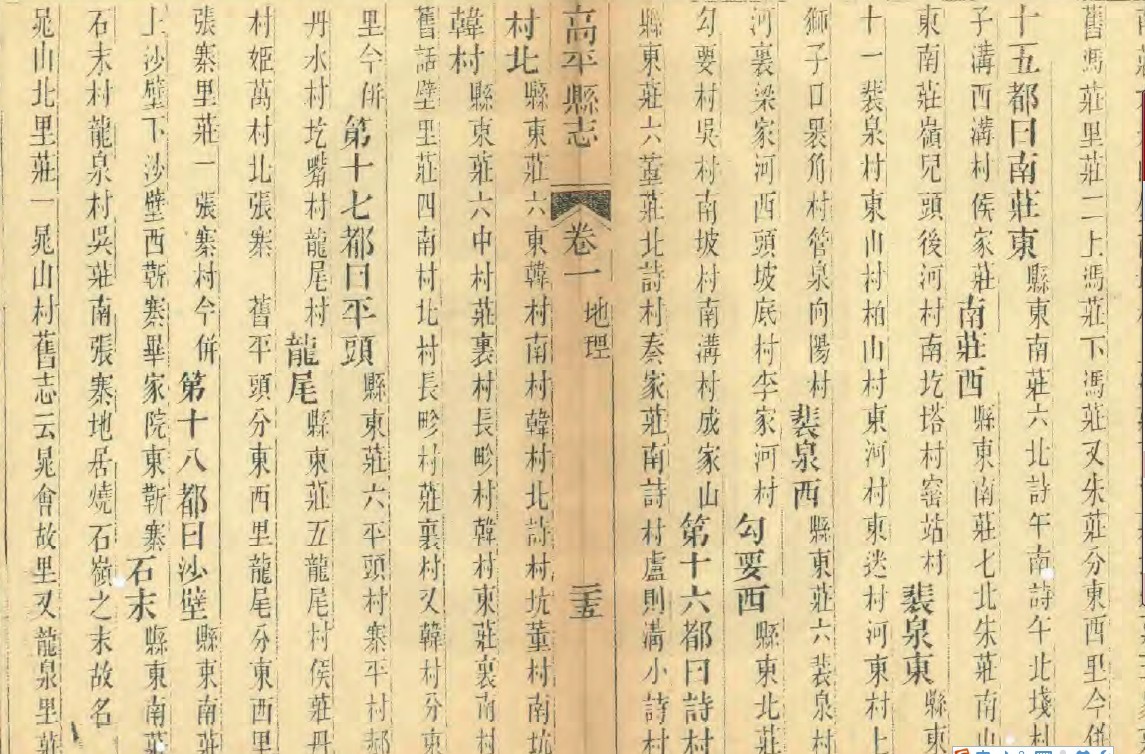 舊馮莊里莊二上馮莊下馮莊又朱莊分東西里今併
十五都曰南莊東縣東南莊六北詩午南詩午北堎村
子溝西溝村侯家莊南莊西縣東南莊七北朱莊南山
東南莊嶺兒頭後河村南圪塔村窑姑村裴泉東縣東
十一裴泉村東山村柏山村東河村東迷村河東村上
獅子口裴角村管泉向陽村裴泉西縣東莊六裴泉村
河裏梁家河西頭坡底村李家河村勾要西縣東北莊
勾要村吳村南坡村南溝村成家山第十六都曰詩村
縣東莊六董莊北詩村秦家莊南詩村盧則溝小詩村
高平縣志
卷一
地理
三五
村北縣東莊六東韓村南村韓村北詩村坑董村南坑
韓村縣東莊六中村莊裏村長畛村韓村東莊裏南村
舊話壁里莊四南村北村長畛村莊裏村又韓村分東
里今併第十七都曰平頭縣東莊六平頭村寨平村郝
丹水村圪嘴村龍尾村龍尾縣東莊五龍尾村侯莊丹
村姬萬村北張寨舊平頭分東西里龍尾分東西里
張寨里莊一張寨村今併第十八都曰沙壁縣東南莊
上沙壁下沙壁西靳寨畢家院東靳寨石末縣東南莊
石末村龍泉村吳莊南張寨地居燒石嶺之末故名
晁山北里莊一晁山村舊志云晁會故里又龍泉里莊